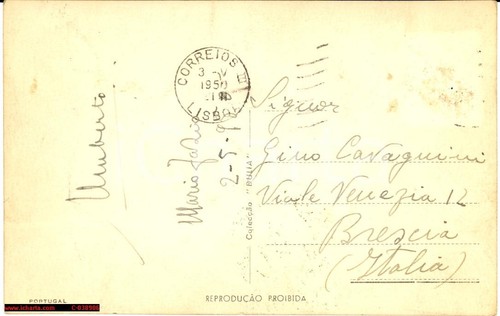 Umberto
CORREIOS III
3-V
1950
LISBOA
Mario
2-5-
Colecção "DULIA"
Signor
Gino Cavagnini
Viale Venezia 12
Brescia
(Italia)
PORTUGAL
REPRODUÇÃO PROIBIDA
www.icharta.com C-038988